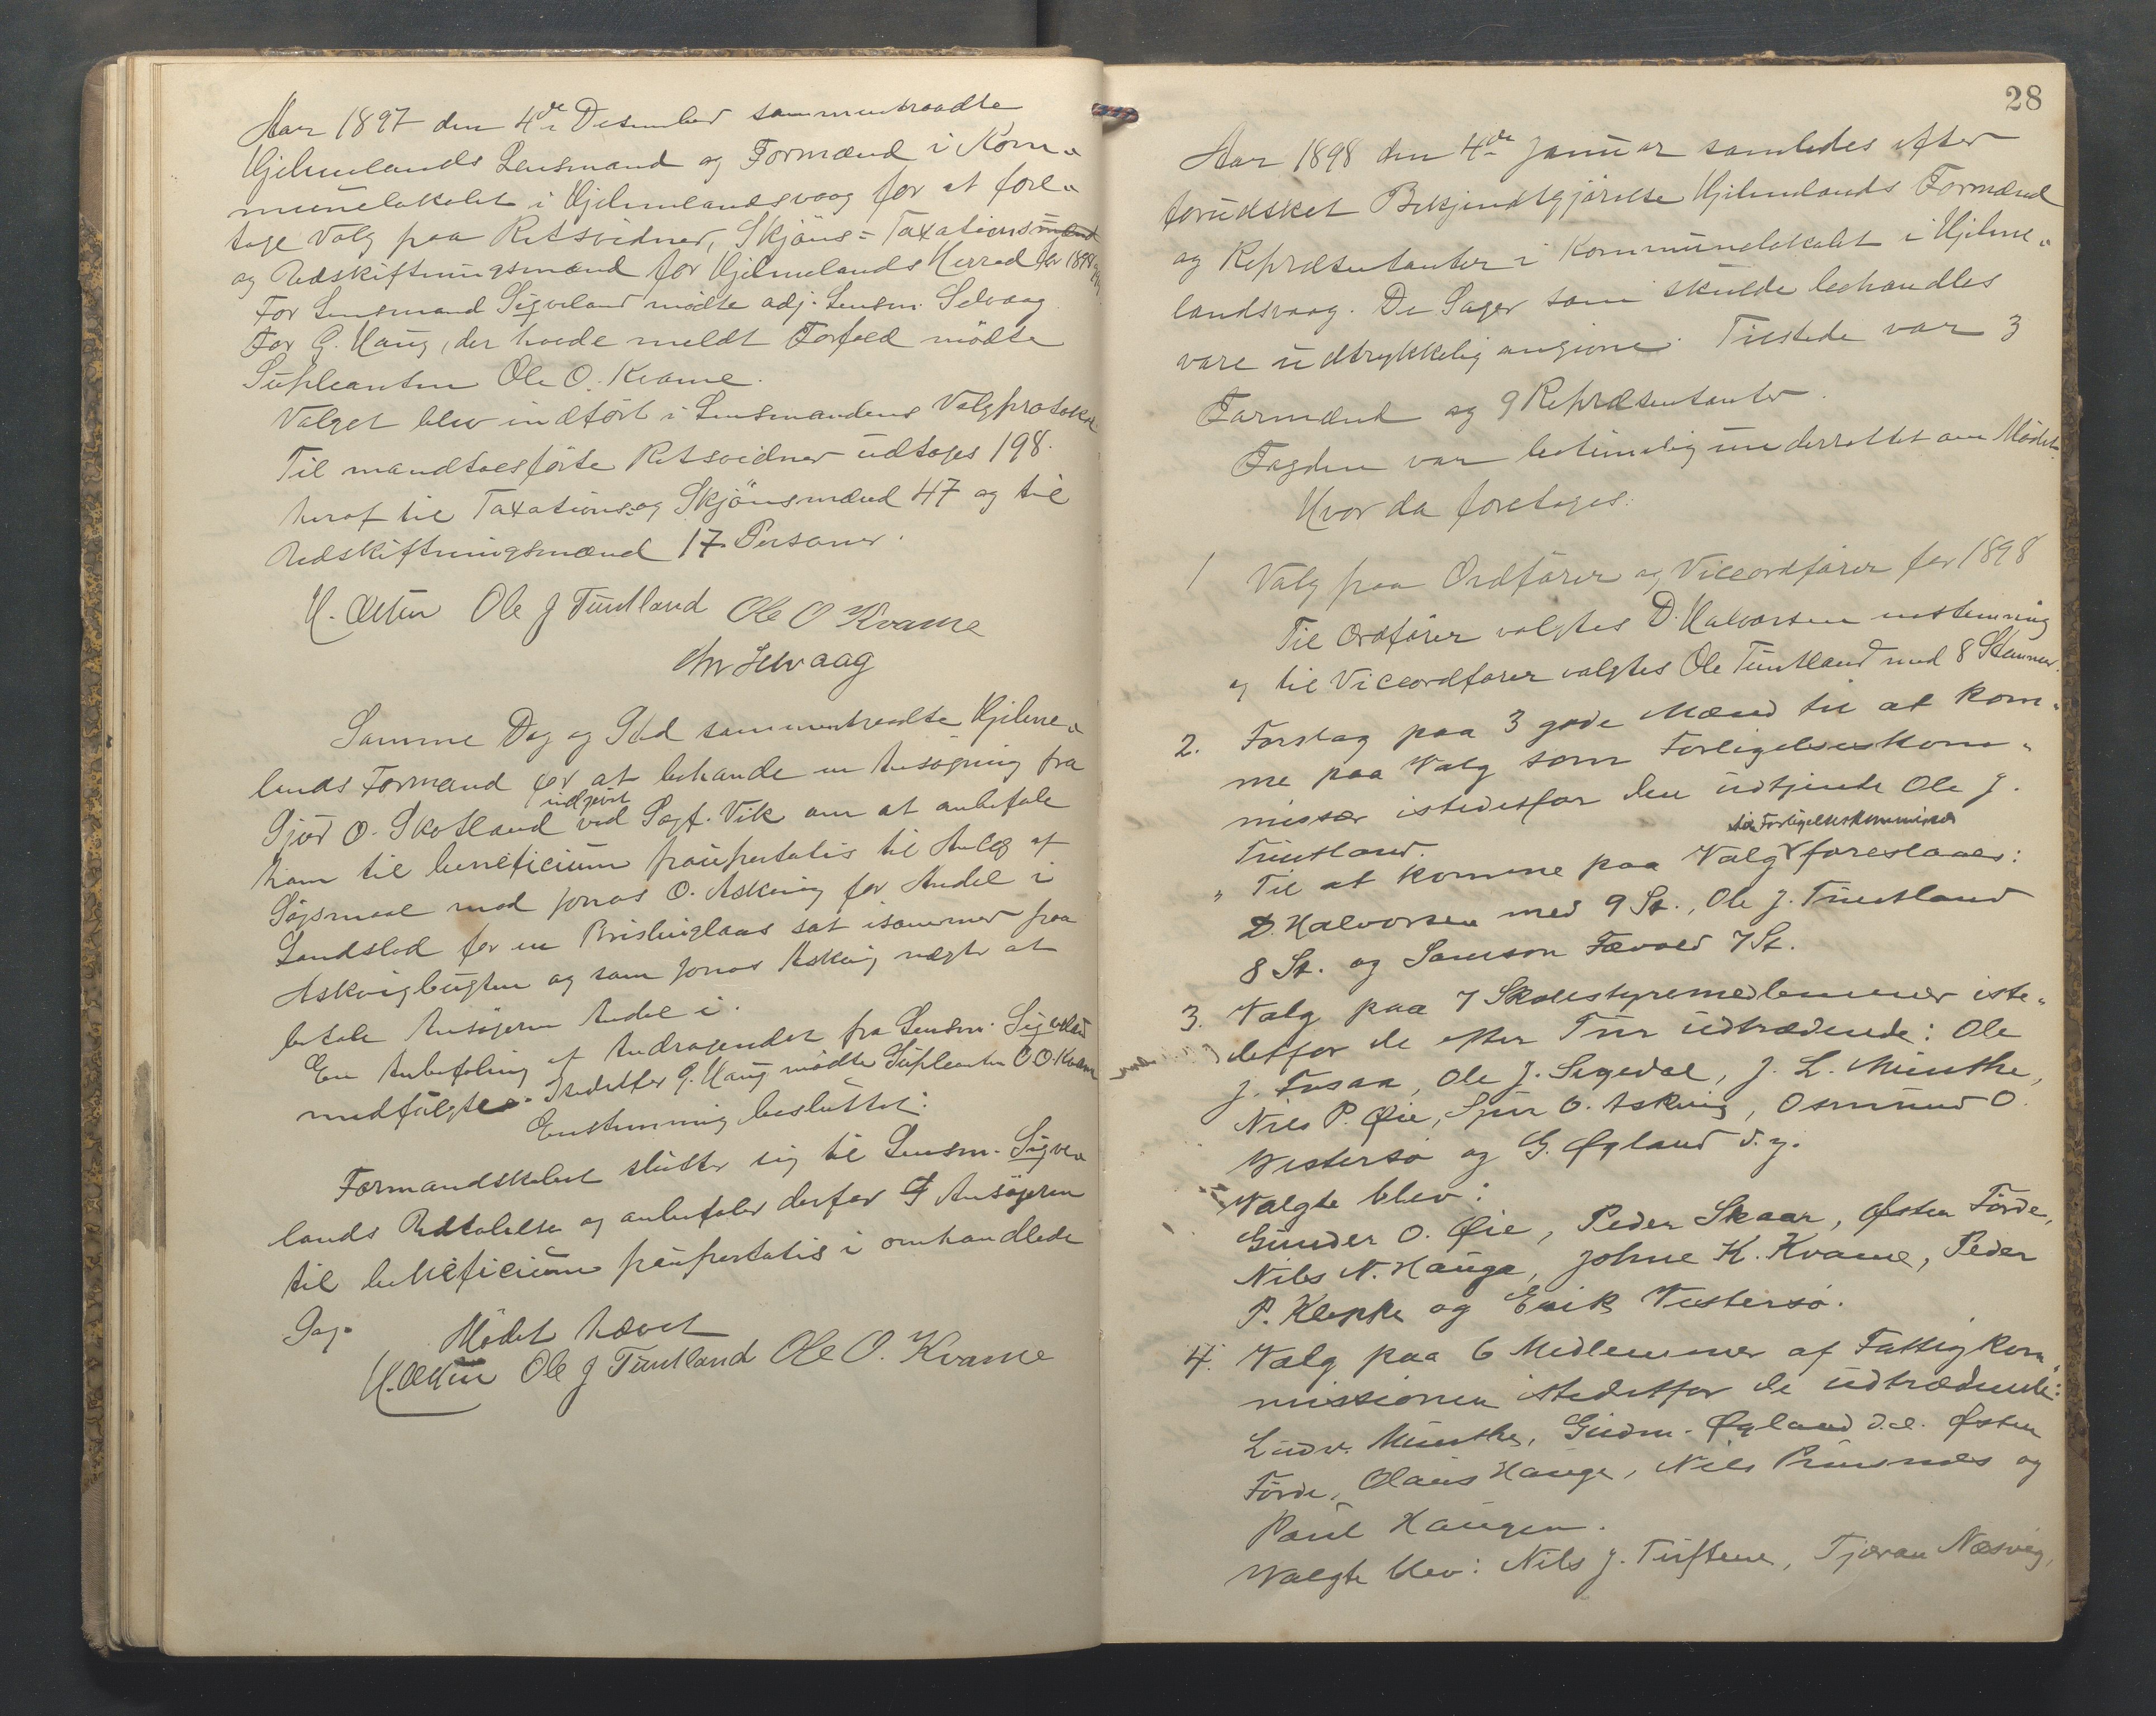 Aar 1897 den 4de Desember sammentraadte
Hjelmelands Lensmand og Formænd i Kom-
munelokalet i Hjelmelandsvaag for at fore-
tage Valg paa Retsvidner, Skjöns- Taxationsmænd
og Udskiftningsmænd for Hjelmelands Herred for 1898
For Lensmand Sigveland mödte adj. Lensm. Selvaag
For G. Haug, der havde meldt Forfald mödte
Supleanten Ole O. Kvame.
Valget blev indfört i Lensmandens Valgprotokol
Til mandtalsförte Retsvidner udtoges 198.
heraf til Taxations og Skjönsmænd 47 og til
Udskiftningsmænd 17 Personer.
Ole J Tuntland Ole O Kvame
Selvaag
Samme Dag og Sted sammentraadte Hjelme-
lands Formænd for at behandle en Ansögning fra
Sjur O. Skotland indgivet ved Sagf. Vik om at anbefale
ham til beneficium paupertatis til Anlæg af
Sögsmaal mod Jonas O. Askvig for Andel i
Landslod for en Brislinglaas sat isommer paa
Askvigbugten og som Jonas Askvig nægter at
betale Ansögeren Andel i.
En Anbefaling af Andragendet fra Lensm. Sigveland
medfulgte. Istedetfor G. Haug mödte Supleanten O O. Kvame
Enstemmig besluttet:
Formandskabet slutter sig til Lensm. Sigve-
lands Udtalelse og anbefaler derfor Ansögeren
til beneficium paupertatis i omhandlede
Sag.
Mödet hævet
Ole J Tuntland Ole O. Kvame
28
Aar 1898 den 4de Januar samledes efter
forudsket Bekjendtgjörelse Hjelmelands Formænd
og Repræsentanter i Kommunelokalet i Hjelme-
landsvaag. De Sager som skulde behandles
vare udtrykkelig angivne. Tilstede var 3
Formænd og 9 Repræsentanter.
Fogden var betimelig underrettet om Mödet.
Hvor da foretoges:
1 Valg paa Ordförer og Viceordförer for 1898
Til Ordförer valgtes D. Halvorsen enstemmig
og til Viceordförer valgtes Ole Tuntland med 8 Stemmer.
2. Forslag paa 3 gode Mænd til at kom-
me paa Valg som Forligelseskom-
missær istedetfor den udtjente Ole J.
Tuntland.
" Til at komme paa Valg til Forligelseskommissær foreslaaes:
D. Halvorsen med 9 St., Ole J. Tuntland
8 St. og Samson Fævold 7 St.
3. Valg paa 7 Skolestyremedlemmer iste-
detfor de efter Tur udtrædende: Ole
J. Fusaa, Ole J. Segedal, J. L. Munthe,
Nils P. Øie, Sjur O. Askvig, Osmund O.
Vestersö og G. Øgland d.y.
Valgte blev:
Gunder O. Øie, Peder Skaar, Østen Förde,
Nils N. Hauge, Johne K. Kvame, Peder
P. Kleppe og Erik Vestersö.
4. Valg paa 6 Medlemmer af Fattigkom-
missionen istedetfor de udtrædende:
Ludv. Munthe, Gudm. Øgland d.e. Østen
Förde, Olaus Hauge, Nils Prunnes og
Paul Haugen.
Valgte blev: Nils J. Tuftene, Tjeran Næsvig,